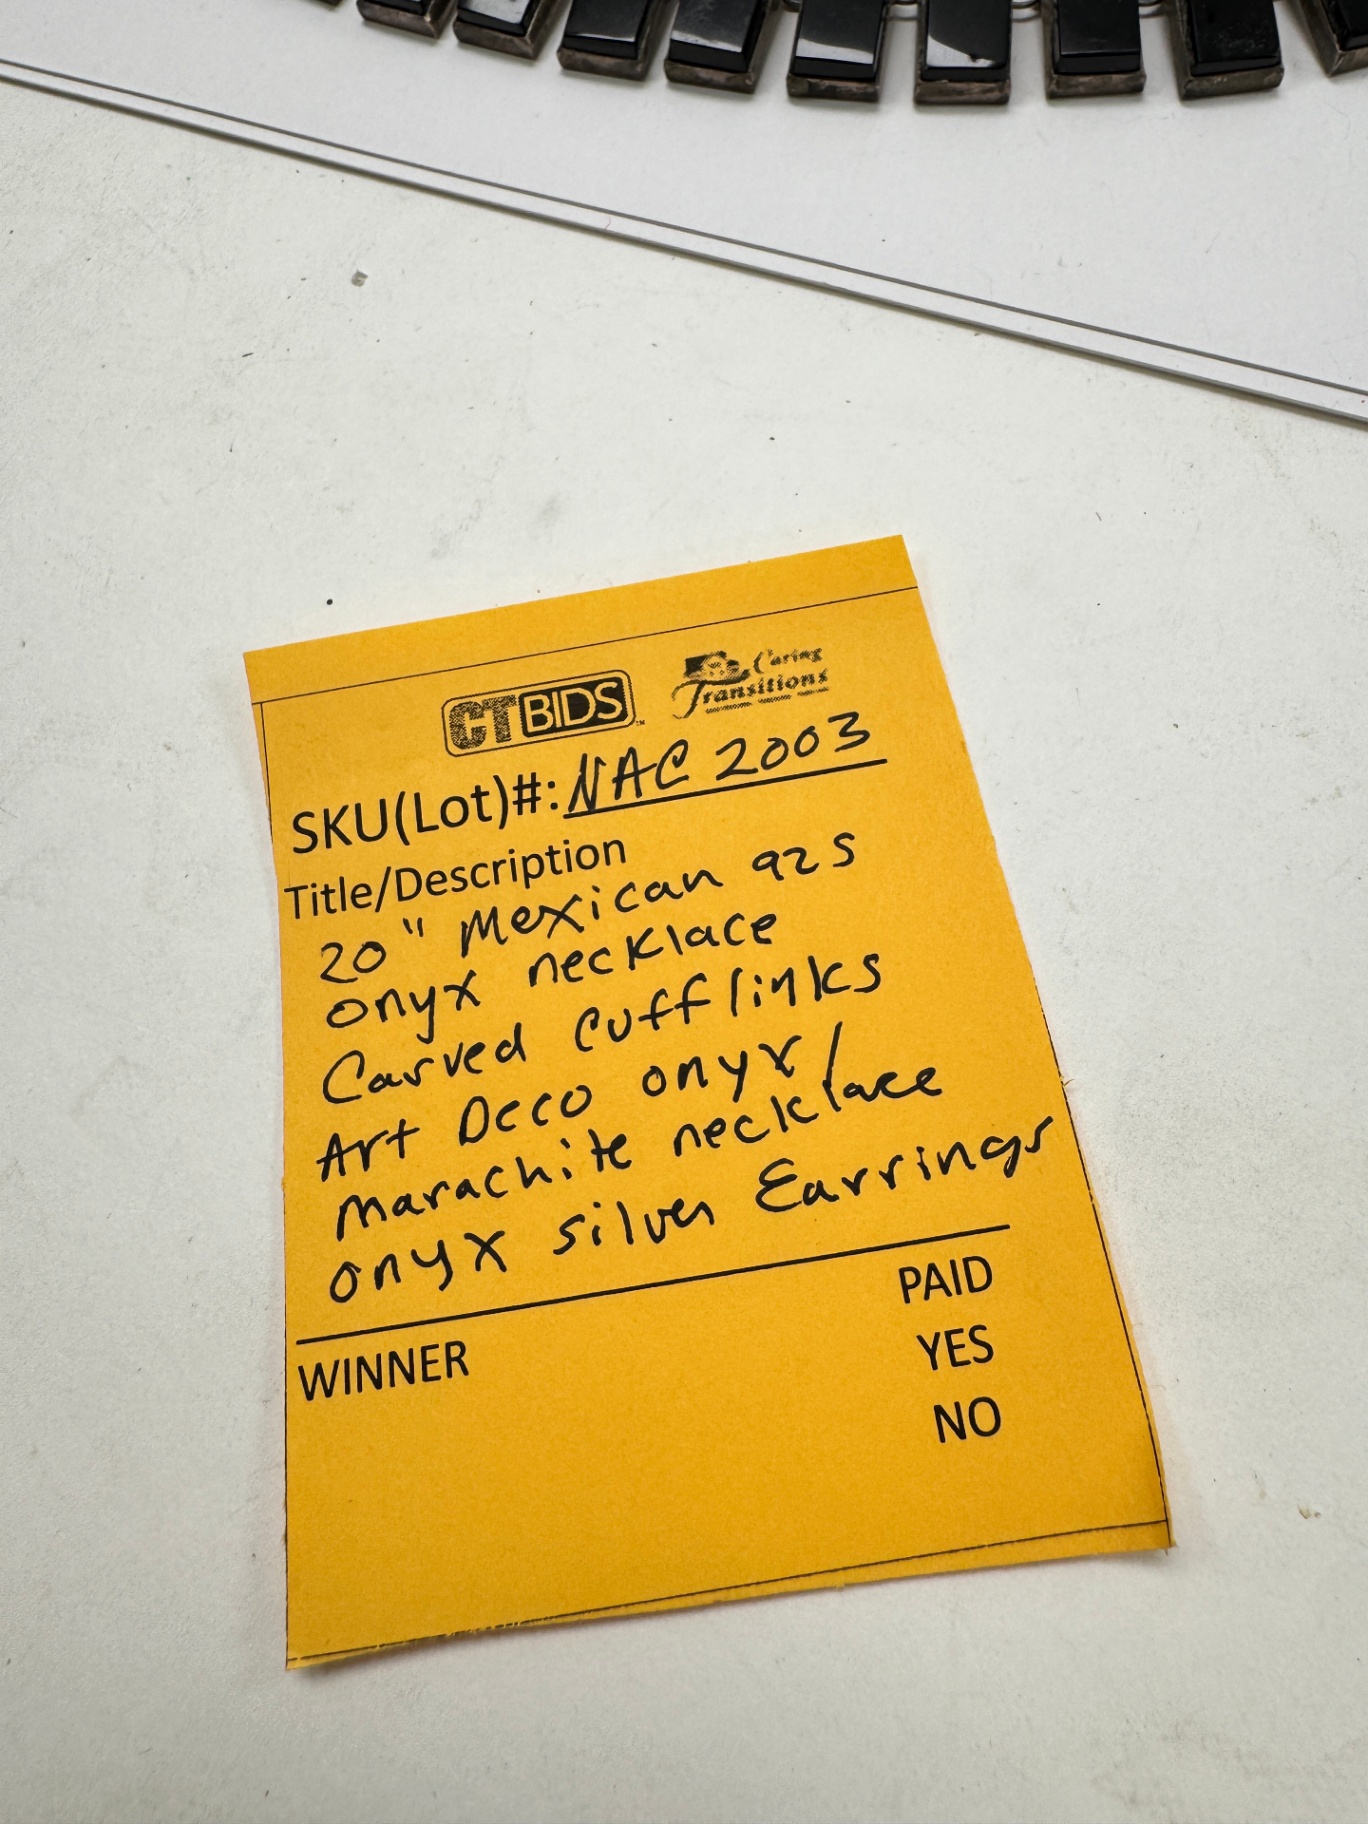 CTBIDS™ Caring Transitions
SKU(Lot)#: NAC 2003
Title/Description
20" Mexican 925
onyx necklace
Carved cufflinks
Art Deco onyx/
Marachite necklace
onyx silver Earrings
WINNER
PAID
YES
NO